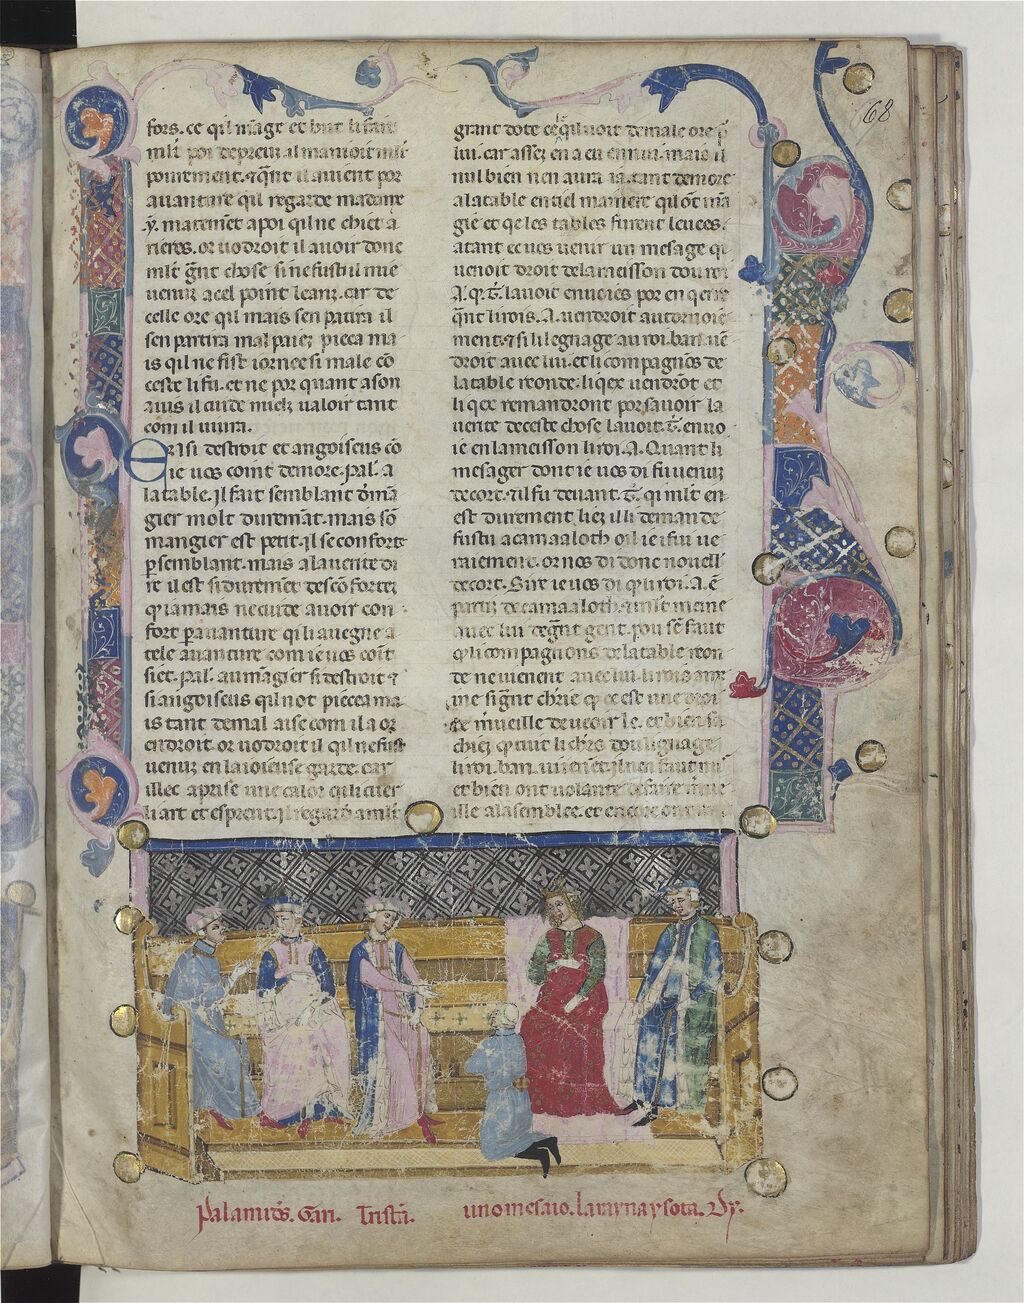 68
fors. ce qil mãge et but li fait
mlt poi de preu. il manioit mlt
pourement. ⁊ qñt il auient por
auanture qil regarde madame
ẏ. maremẽt a poi qil ne chiet a
rieres. or uodroit il auoir donc
mlt gñt chose si ne fust il mie
uenuz a cel point leanz. car de
celle ore qil mais sen patira il
sen partira mal paiez pieca ma
is qil ne fist iornee si male cõ
ceste li fu. et ne por quant a son
auis il cuide mielz ualoir tant
com il uiura.
Ensi destroit et angoiseus cõ
ie uos coint demore .pal. a
la table. Il fait semblant d'mã
gier molt duremãt. mais sõ
mangier est petit. il se conforte
p semblant. mais a la uerite di
re il est si duremẽt descõfortez
q iamais ne cuide auoir con
fort p auanture qi li auegne a
tele auanture com ie uos coit
siet .pal. au mãgier si destroit ⁊
si angoiseus qil not pieca ma
is tant de mal aise com il a or
endroit. or uodroit il qil ne fust
uenuz en la ioieuse garde. car
illec a prise une calor qi li cuer
li art et esprent. Il regarde a mlt
grant dote ce qil uoit de male ore p
lui. car assez en a eu ennui. mais il
nul bien nen aura ia. tant demore
a la table en tiel maniere qil õt mã
gie et qe les tables furent leuees.
atant ec uos uenir un mesage qi
uenoit droit de la meisson dou roi
.A. q .T. lauoit enuoies por en qerre
qñt li rois .A. uendroit au tornoie
ment. ⁊ si li legnage au roi .ban. uẽ
droit auec lui. et li compagnos de
la table reonde. li qex uendrõt et
li qex remandront por sauoir la
uerite de ceste chose lauoit .T. enuo
ie en la meisson li roi .A. Quant li
mesager dont ie uos di fu uenuz
de cort. ⁊ il fu deuant .T. qi mlt en
est durement liez il li demande
fustu a camaaloth oil ie i fui ue
raiement. or nos di donc nouell
de cort. Sire ie uos di q li roi .A. ẽ
partiz de camaaloth. ⁊ mlt meine
auec lui de gñt gent. pou sẽ faut
q li compagnons de la table reon
de ne uienent auec lui. li rois
me signt chrie q ce est une droi
te mueille de ueoir le. et bien sa
chiez q tuit li chrs dou lignage
li roi .ban. uienẽt. Il nen faut nus
et bien ont uolante de faire mue
ille a la semblee. et encore ont
Palamides. Gan. Tristã.
uno mesaio. la rayna ysota. Dy.